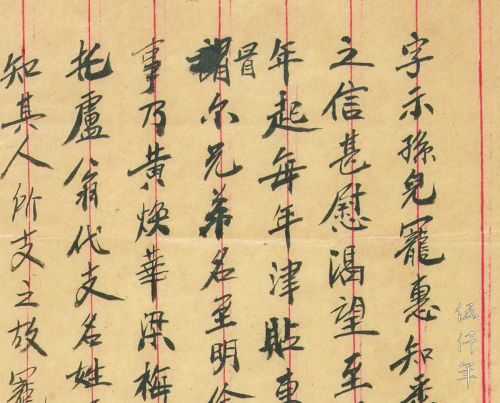 字示孫兒寵惠知悉
之信甚慰渴望至
年起每年津貼東
冒
尔兄弟名至明
事乃黄焕華梁梅
托盧翁代支名姓
知其人所支之故寵
伍仟年